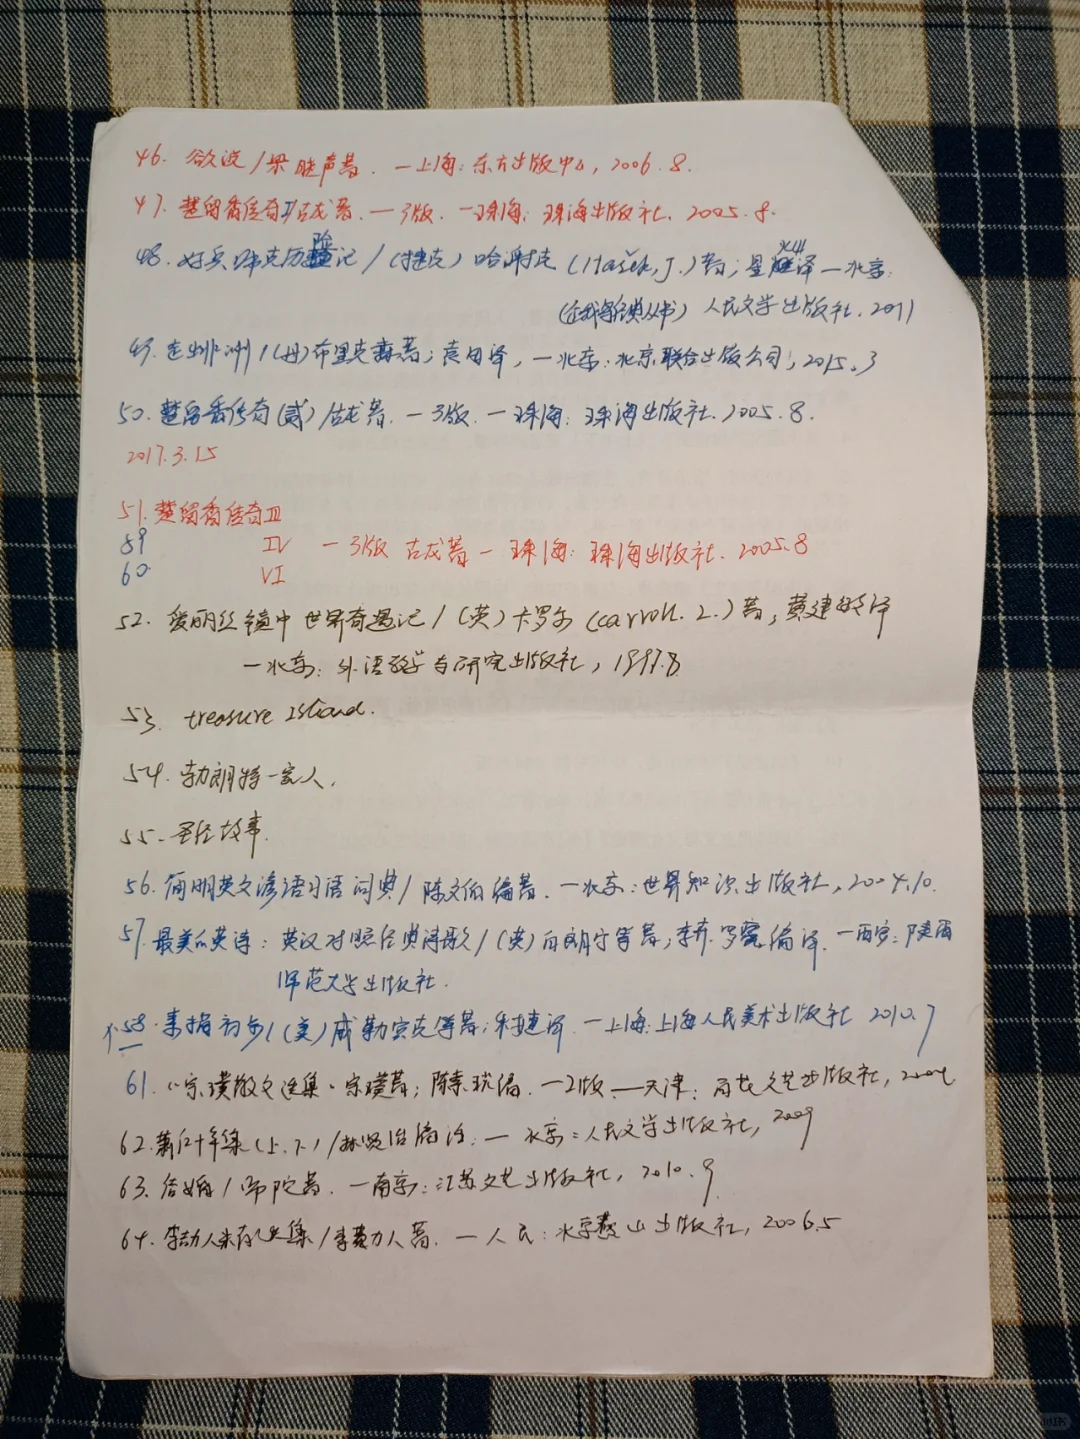 46. 欲说/梁晓声著. —上海: 东方出版中心, 2006.8.
47. 楚留香传奇I/古龙著. —3版. —珠海: 珠海出版社. 2005.8.
48. 好兵帅克历险记/(捷克)哈谢克(Hašek, J.)著; 星灿译—北京:
人民文学出版社. 2011
49. 走出非洲/(丹)布里克森著; 译, —北京: 北京联合出版公司, 2015.3
50. 楚留香传奇(贰)/古龙著. —3版. —珠海: 珠海出版社. 2005.8.
2017.3.15
51. 楚留香传奇III
59 IV —3版 古龙著—珠海: 珠海出版社. 2005.8
60 VI
52. 爱丽丝镜中世界奇遇记/(英)卡罗尔(Carroll. L.)著, 黄建译
—北京: 外语教学与研究出版社, 1997.8
53. treasure Island.
54. 勃朗特一家人.
55. 圣经故事.
56. 简明英文谚语习语词典/陈文伯编著. —北京: 世界知识出版社, 2004.10.
57. 最美的英诗: 英汉对照经典诗歌/(英)白朗宁等著, 李, 罗编译. —西安: 陕西
师范大学出版社.
58. 素描初步/(美)威勒著; 译. —上海: 上海人民美术出版社 2010.7
61. 宗璞散文选集·宗璞著; 陈素琰编. —2版. —天津: 百花文艺出版社, 2009
62. 萧红十年集(上.下)/林贤治编注. —北京: 人民文学出版社, 2009
63. 合婚/著. —南京: 江苏文艺出版社, 2010.9
64. 李劼人著. —人民: 北京燕山出版社, 2006.5